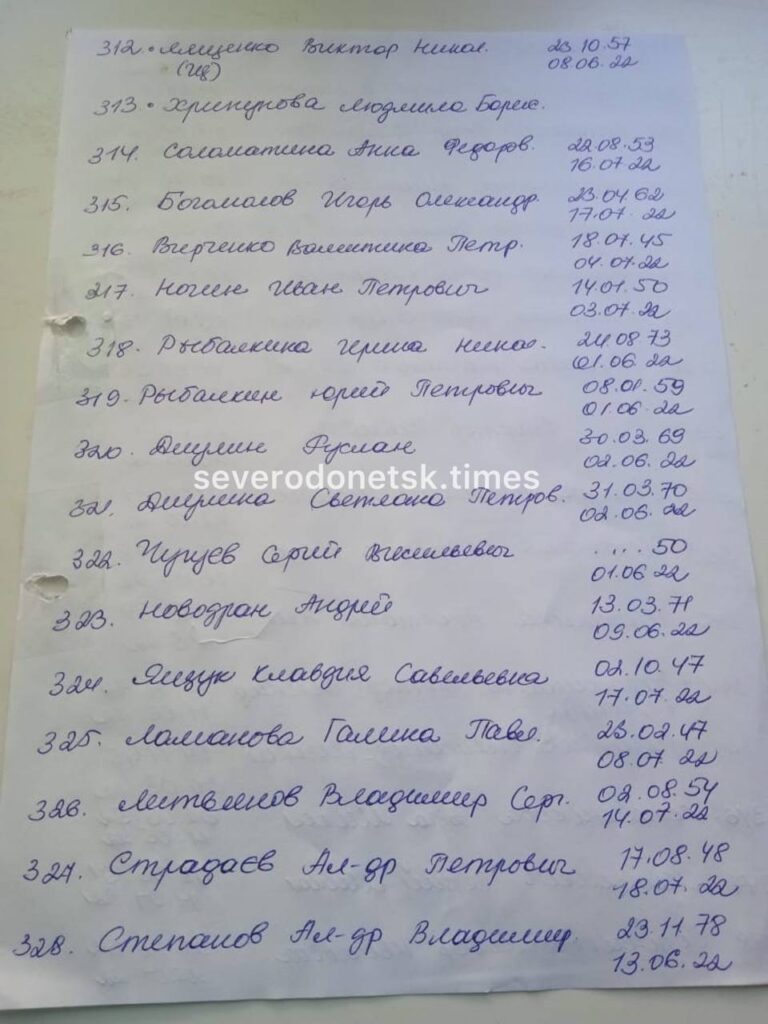 312. Ялищенко Виктор Никол. 23.10.57
(ИФ) 08.06.22
313. Хрипунова Людмила Борис.
314. Соломатина Анна Федоров. 22.08.53
16.07.22
315. Богомолов Игорь Олександр. 23.04.62
17.07.22
316. Вирченко Валентина Петр. 18.07.45
04.07.22
217. Ногин Иван Петрович 14.01.50
03.07.22
318. Рыбалкина Ирина Никол. 24.08 73
01.06.22
319. Рыбалкин Юрий Петрович 08.01.59
01.06.22
320. Дюлин Руслан 30.03.69
02.06.22
severodonetsk.times
321. Светлана Петров. 31.03.70
02.06.22
322. Сергий Васильевич ....50
01.06 22
323. Новодран Андрей 13.03.71
09.06.22
324. Ящук Клавдия Савельевна 02.10.47
17.07.22
325. Ломанова Галина Павл. 23.02.47
08.07 22
326. Литвинов Владимир Серг. 02.08.54
14.07.22
327. Страдаєв Ал-др Петрович 17.08.48
18.07.22
328. Степанов Ал-др Владимир. 23.11.78
13.06.22